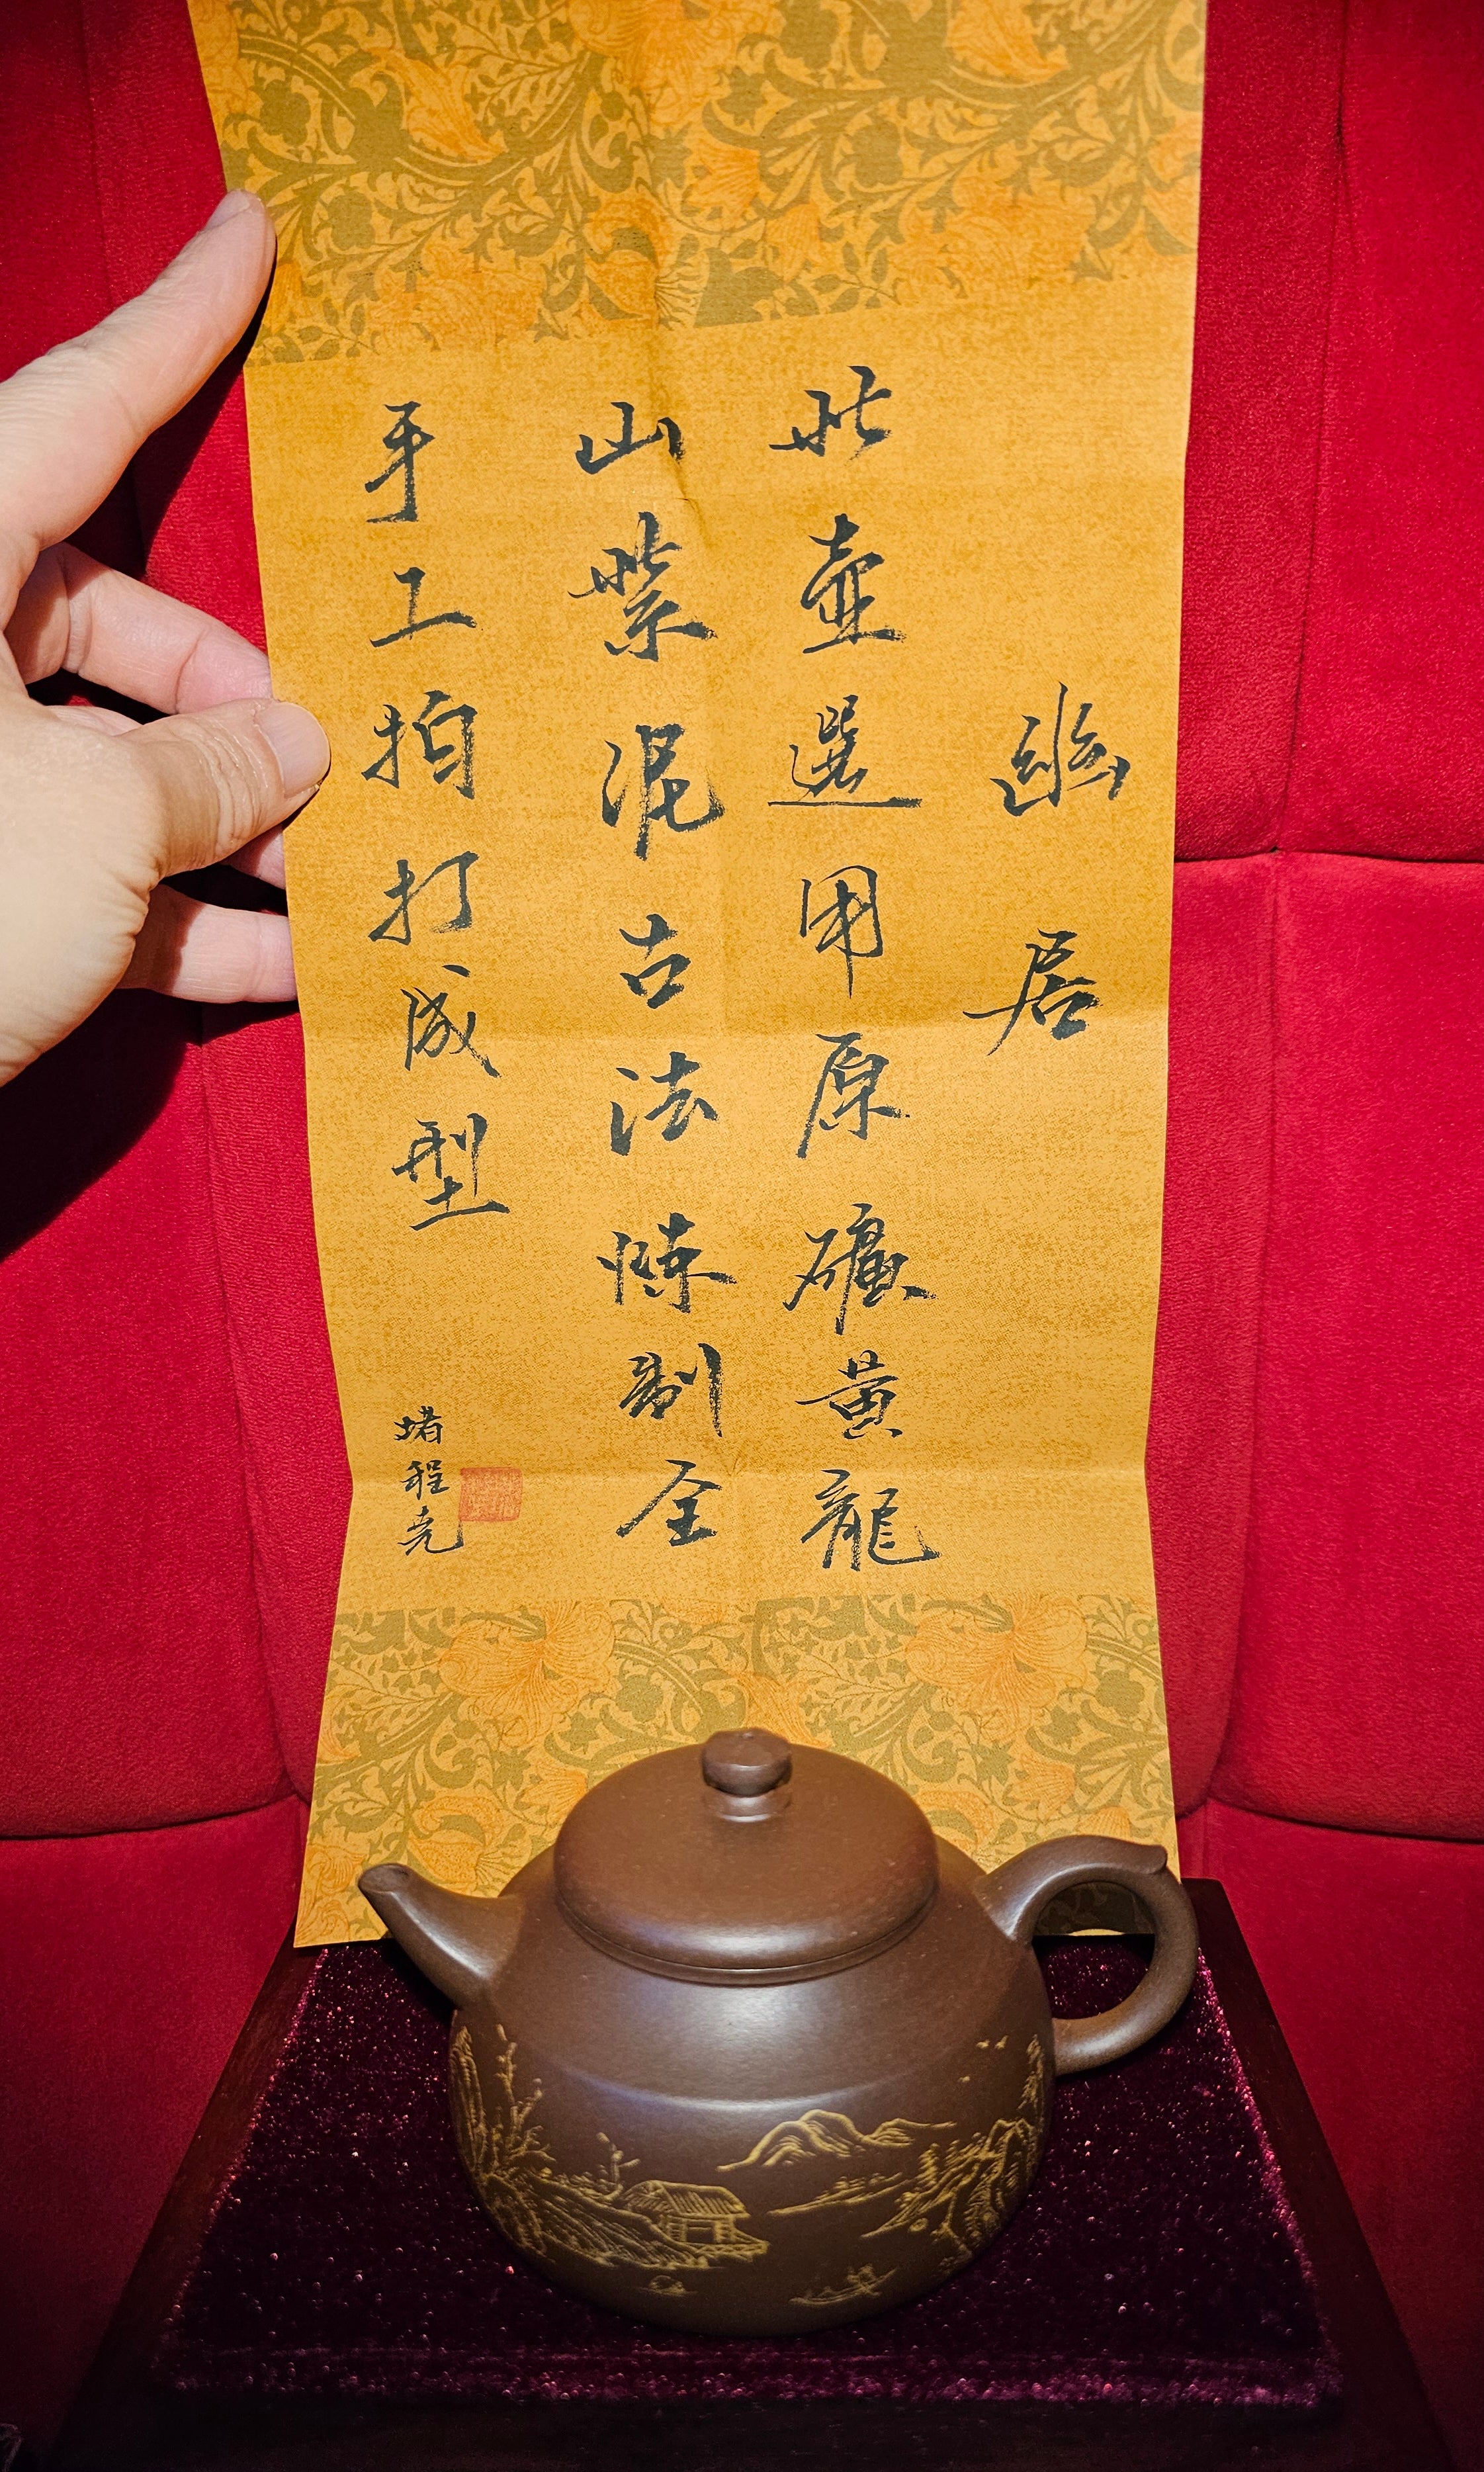 幽居
此壺選用原礦黄龍
山紫泥古法煉制全
手工拍打成型
堵程尭